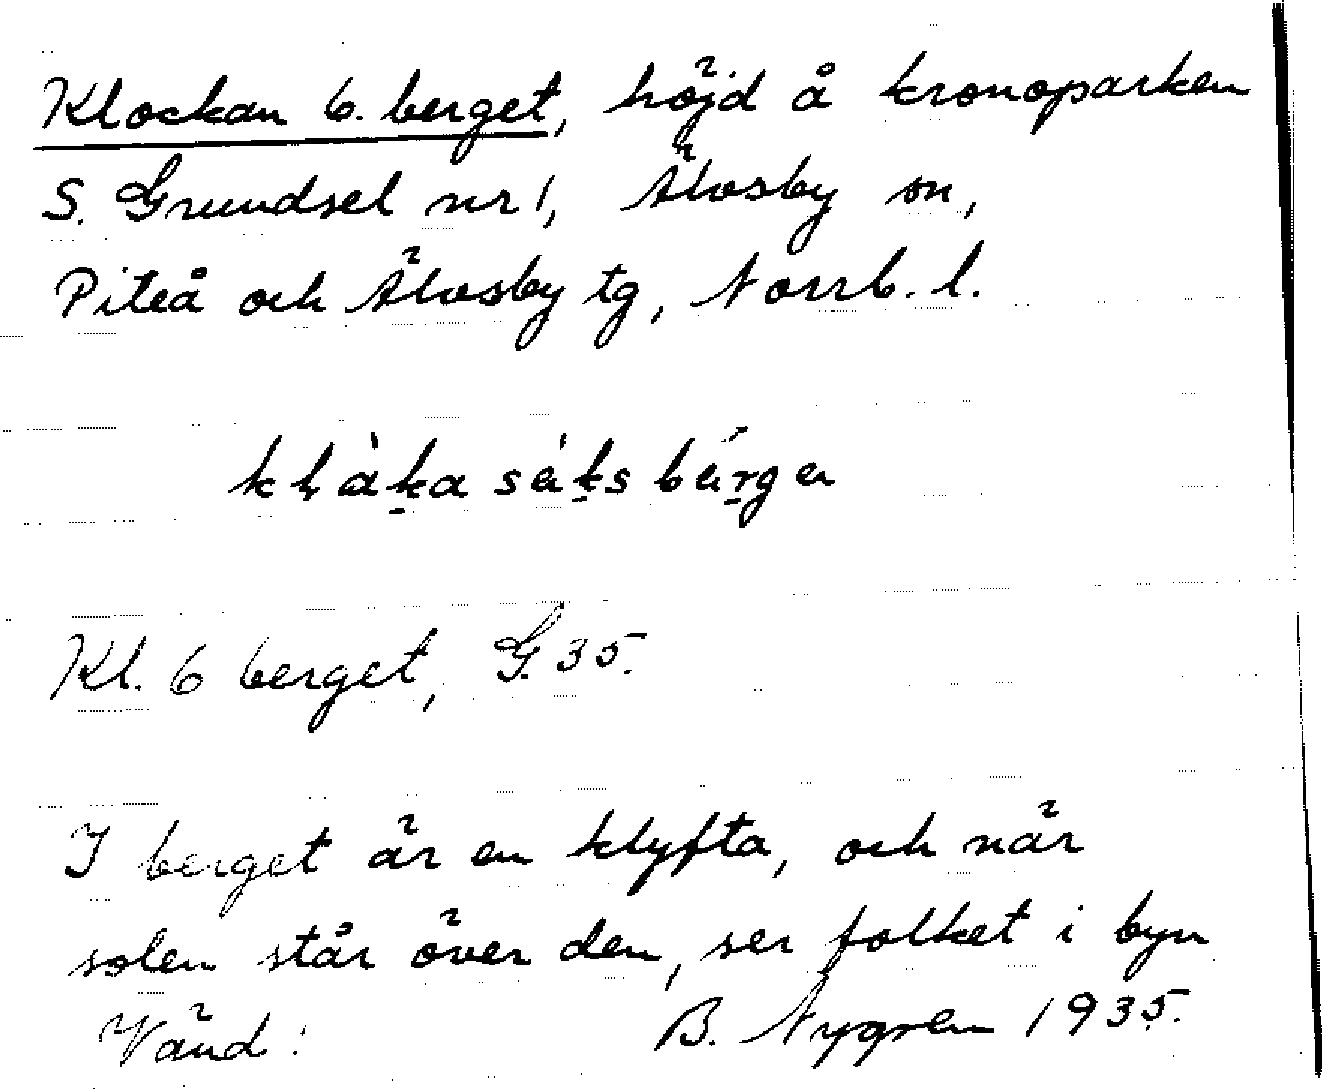 Klockan 6. berget, höjd å kronoparken
S. Grundsel nr 1, Älvsby sn,
Piteå och Älvsby tg, Norrb. l.
klàka sáks bǽrgen
Kl. 6 berget, G. 35.
I berget är en klyfta, och när
solen står över den, ser folket i byn
Vänd! B. Nygren 1935.